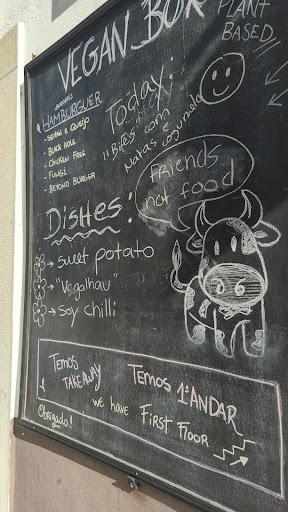 VEGAN BOX
PLANT
BASED
HAMBURGUER
- SEITAN & QUEIJO
- BLACK HOLE
- CHICKEN FREE
- FUNGI
- BEYOND BURGER
Today:
"Bites" com
Natas e cogumelo
Friends
not food
DISHES:
→ sweet potato
→ "Vegalhau"
→ soy chilli
TEMOS
TAKE AWAY
TEMOS 1º ANDAR
WE HAVE FIRST FLOOR
Obrigado!